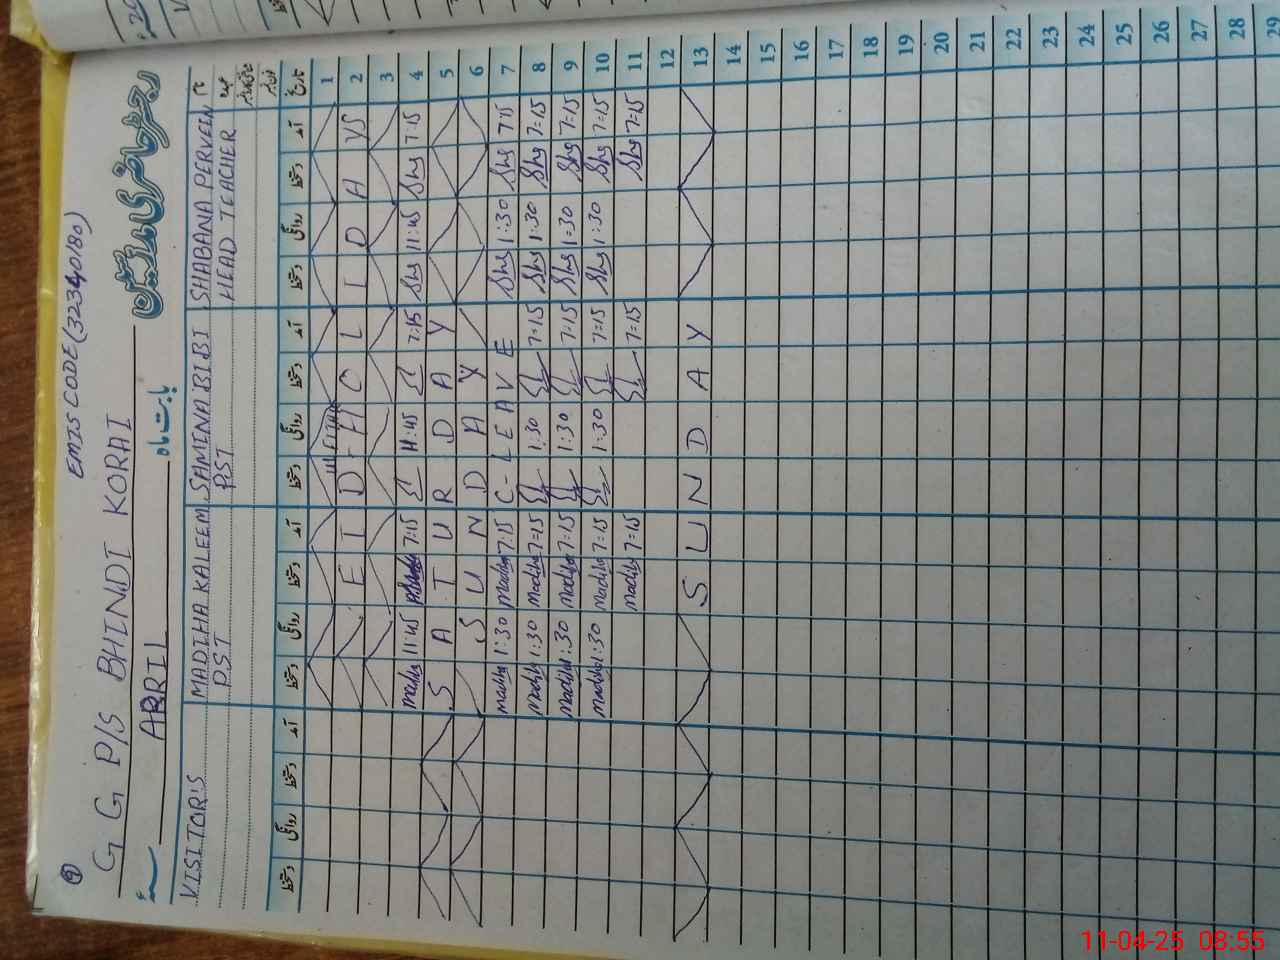 9
EMIS CODE (32340180)
G G P/S BHINDI KORAI
رجسٹر حاضری مدرسین
بابت ماہ
APRIL
VISITOR'S
MADIHA KALEEM
P.S.T
SAMINA BIBI
P.S.T
SHABANA PERVEIN
HEAD TEACHER
نام
عہدہ
دستخط روانگی دستخط آمد دستخط روانگی دستخط آمد دستخط روانگی دستخط آمد دستخط روانگی دستخط آمد تاریخ
1
EID-HOLIDAYS 2
3
11:45 7:15 11:45 7:15 11:45 7:15 4
SATURDAY 5
SUNDAY 6
Madiha 1:30 Madiha 7:15 C-LEAVE 1:30 7:15 7
Madiha 1:30 Madiha 7=15 1:30 7=15 1:30 7=15 8
Madiha 1:30 Madiha 7=15 1:30 7=15 1=30 7=15 9
Madiha 1:30 Madiha 7=15 1:30 7=15 1:30 7=15 10
Madiha 7=15 7=15 7=15 11
12
SUNDAY 13
14
15
16
17
18
19
20
21
22
23
24
25
26
27
28
29
11-04-25 08:55